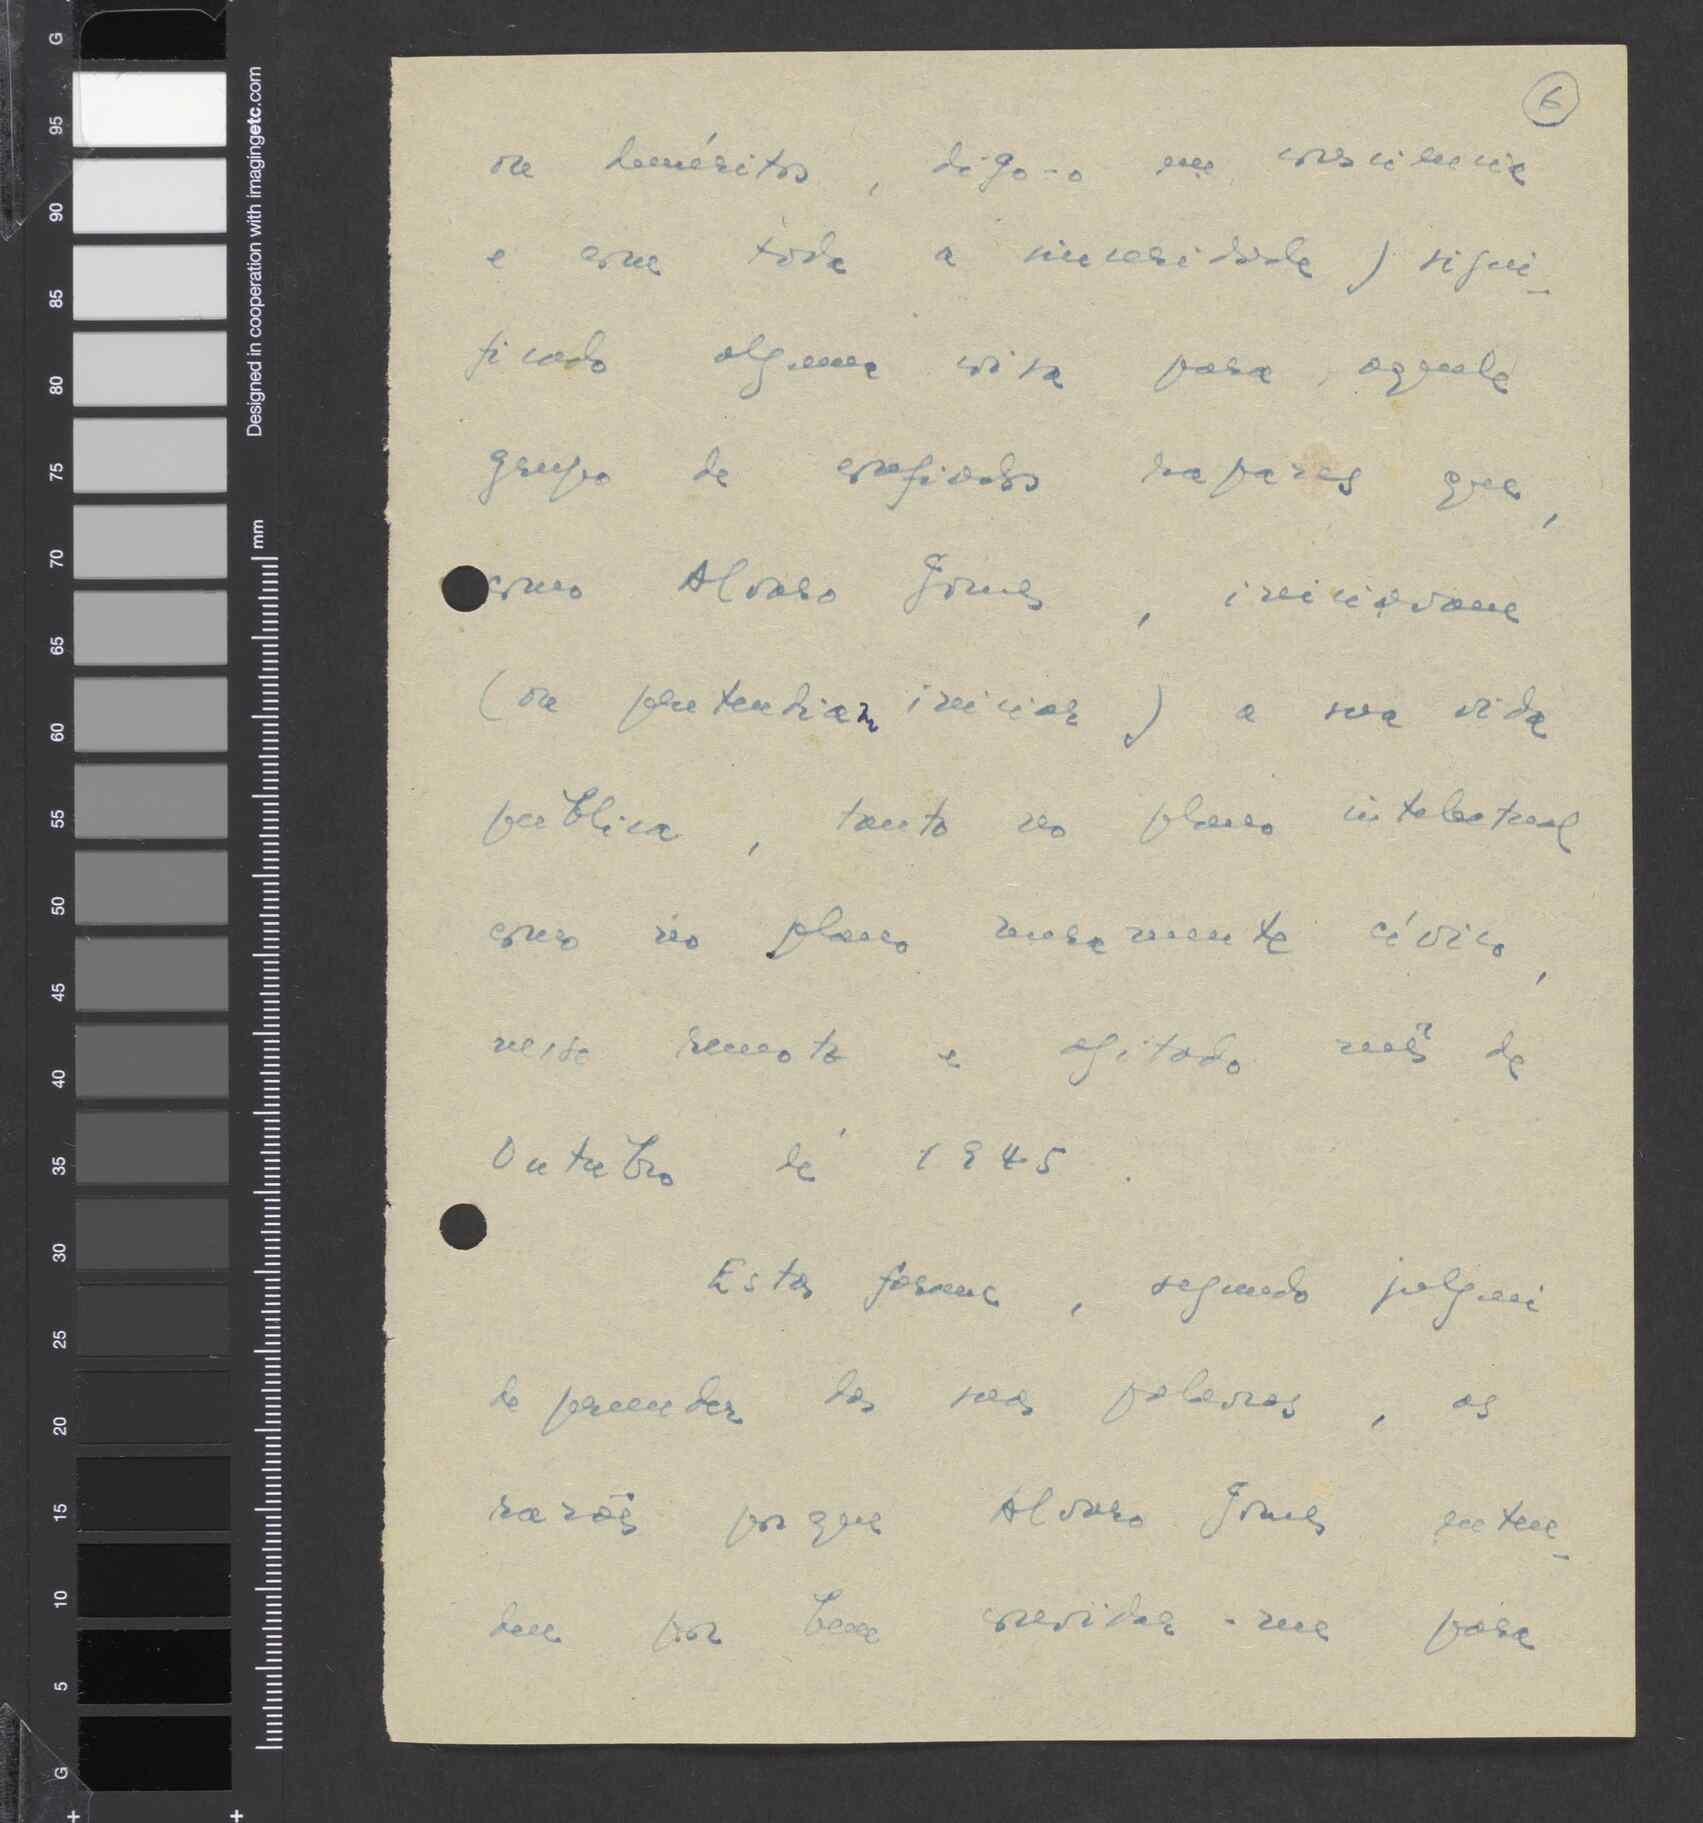 6
ou deméritos, digo-o em consciencia
e com toda a sinceridade) signi-
ficado alguma coisa para aquele
grupo de confiados rapazes que,
como Alvaro Gomes, iniciavam
(ou pretendiam iniciar) a sua vida
publica, tanto no plano intelectual
como no plano meramente cívico,
nesse remoto e agitado mês de
Outubro de 1945.
Estas foram, segundo julguei
depreender das suas palavras, as
razões porque Alvaro Gomes enten-
deu por bem convidar-me para
Designed in cooperation with imagingetc.com
mm
G
95
90
85
80
75
70
65
60
55
50
45
40
35
30
25
20
15
10
5
G